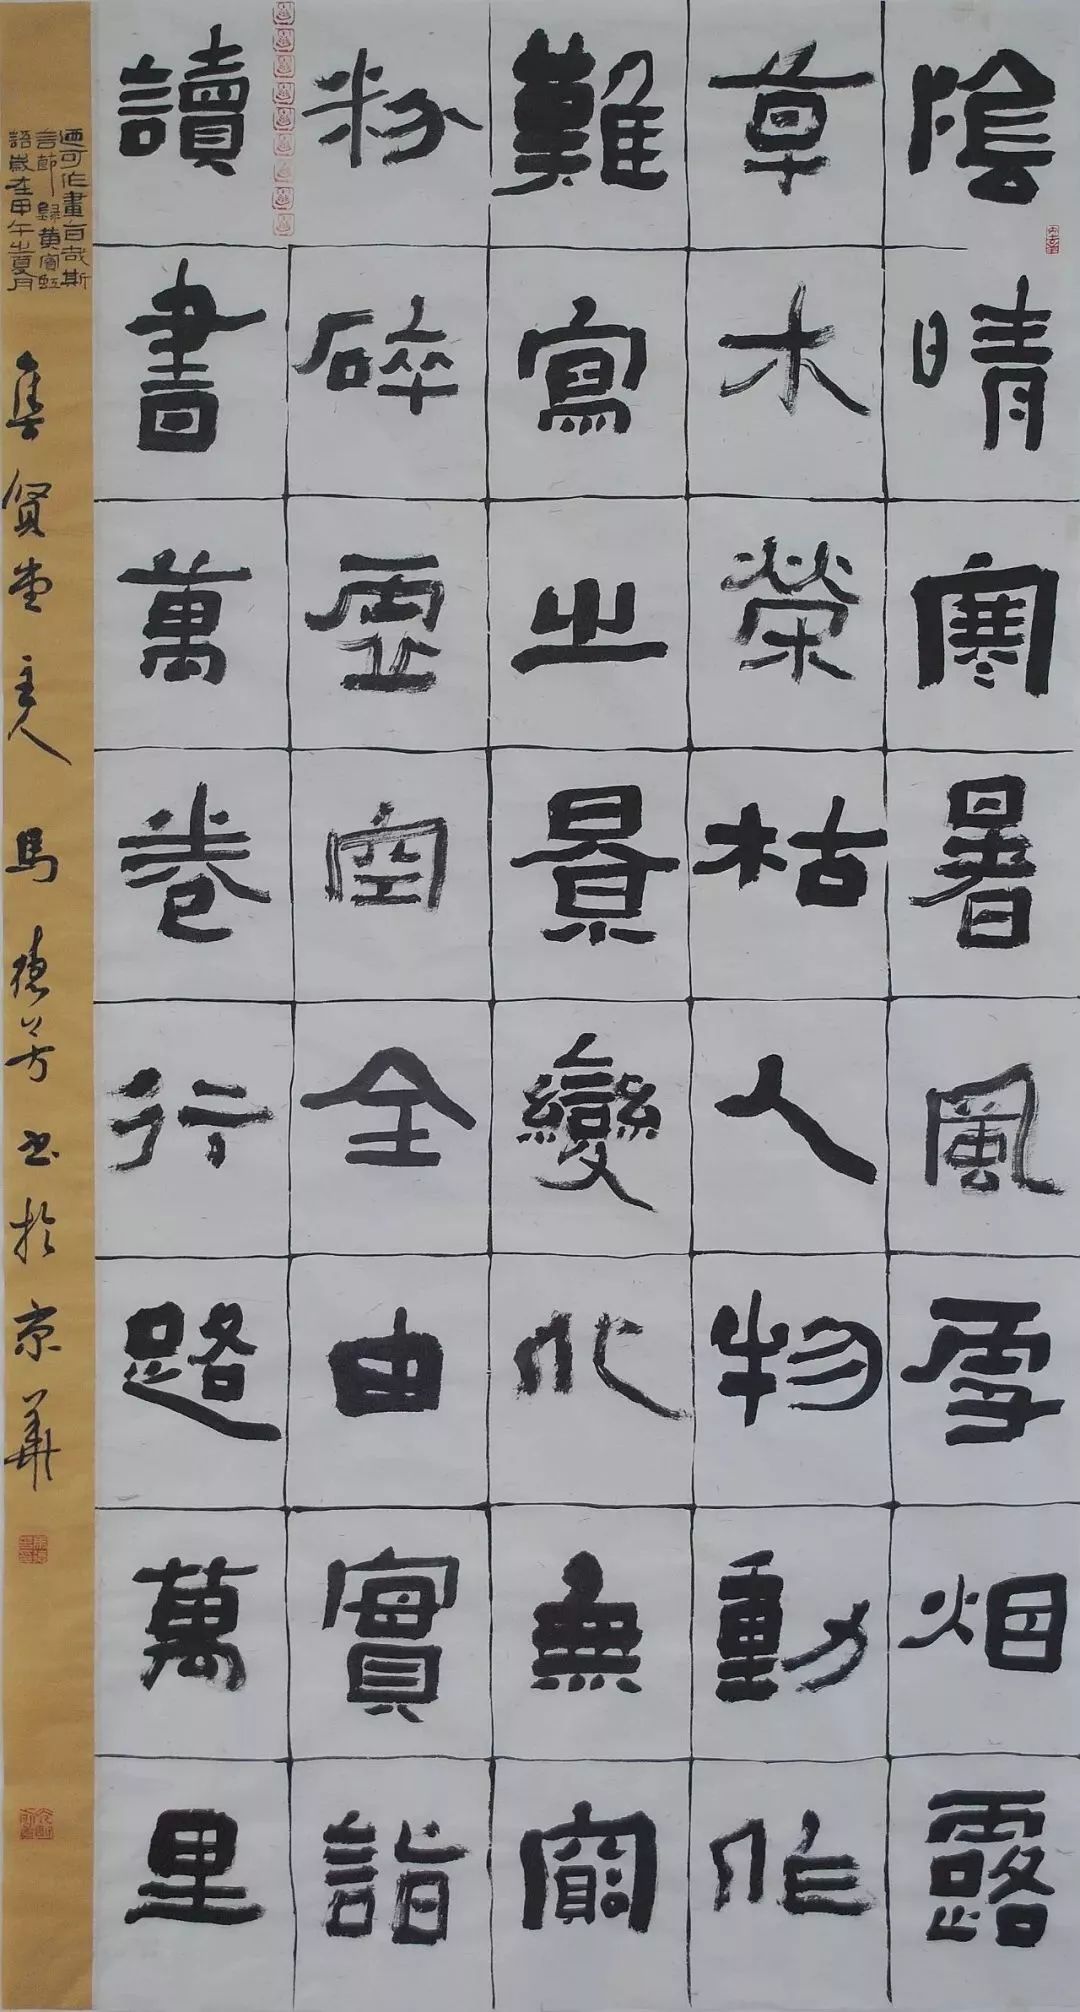 陰晴寒暑風雪烟露
草木榮枯人物動作
難寫之景變化無窮
粉碎虛空全由實詣
讀書萬卷行路萬里
迺可作畫旨哉斯
言節錄黃賓虹
語歲在甲午之夏月
集賢堂主人馬德芳书於京華